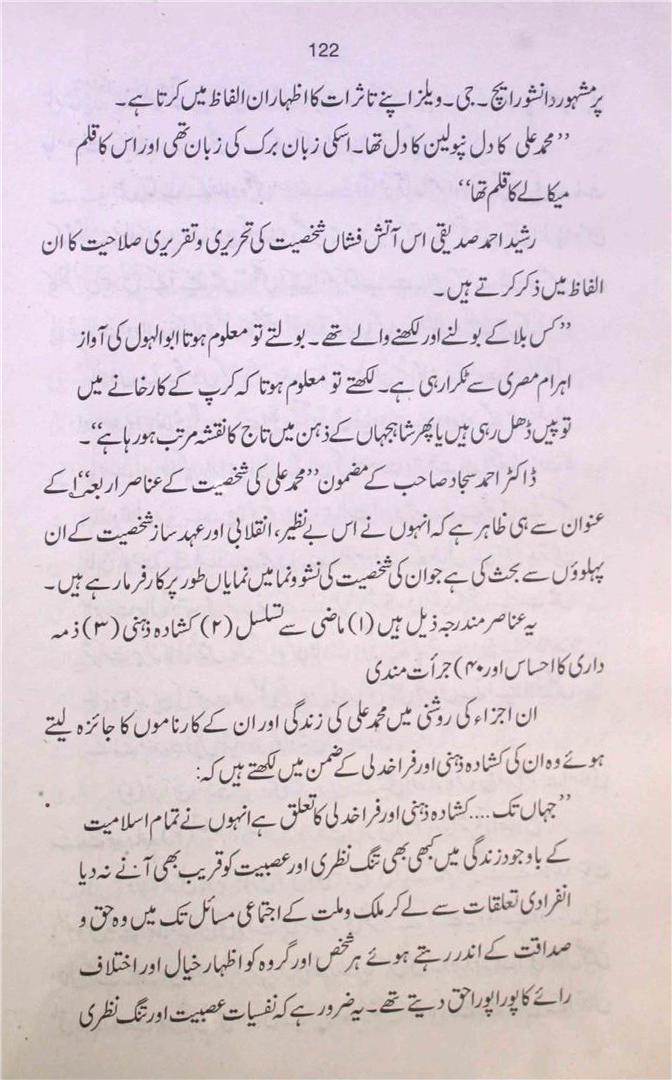 122
پر مشہور دانشور ایچ۔ جی۔ ویلز اپنے تاثرات کا اظہار ان الفاظ میں کرتا ہے۔
’’محمد علی کا دل نپولین کا دل تھا۔ اسکی زبان برک کی زبان تھی اور اس کا قلم
میکالے کا قلم تھا‘‘
رشید احمد صدیقی اس آتش فشاں شخصیت کی تحریری و تقریری صلاحیت کا ان
الفاظ میں ذکر کرتے ہیں۔
’’کس بلا کے بولنے اور لکھنے والے تھے۔ بولتے تو معلوم ہوتا ابوالہول کی آواز
اہرام مصری سے ٹکرا رہی ہے۔ لکھتے تو معلوم ہوتا کہ کرپ کے کارخانے میں
توپیں ڈھل رہی ہیں یا پھر شاہجہاں کے ذہن میں تاج کا نقشہ مرتب ہو رہا ہے‘‘۔
ڈاکٹر احمد سجاد صاحب کے مضمون ’’محمد علی کی شخصیت کے عناصر اربعہ‘‘۱ کے
عنوان سے ہی ظاہر ہے کہ انہوں نے اس بے نظیر، انقلابی اور عہد ساز شخصیت کے ان
پہلوؤں سے بحث کی ہے جو ان کی شخصیت کی نشوونما میں نمایاں طور پر کارفرما رہے ہیں۔
یہ عناصر مندرجہ ذیل ہیں (۱) ماضی سے تسلسل (۲) کشادہ ذہنی (۳) ذمہ
داری کا احساس اور ۴۰) جرأت مندی
ان اجزاء کی روشنی میں محمد علی کی زندگی اور ان کے کارناموں کا جائزہ لیتے
ہوئے وہ ان کی کشادہ ذہنی اور فراخدلی کے ضمن میں لکھتے ہیں کہ:
’’جہاں تک .... کشادہ ذہنی اور فراخدلی کا تعلق ہے انہوں نے تمام اسلامیت
کے باوجود زندگی میں کبھی بھی تنگ نظری اور عصبیت کو قریب بھی آنے نہ دیا
انفرادی تعلقات سے لے کر ملک و ملت کے اجتماعی مسائل تک میں وہ حق و
صداقت کے اندر رہتے ہوئے ہر شخص اور گروہ کو اظہار خیال اور اختلاف
رائے کا پورا پورا حق دیتے تھے۔ یہ ضرور ہے کہ نفسیات عصبیت اور تنگ نظری